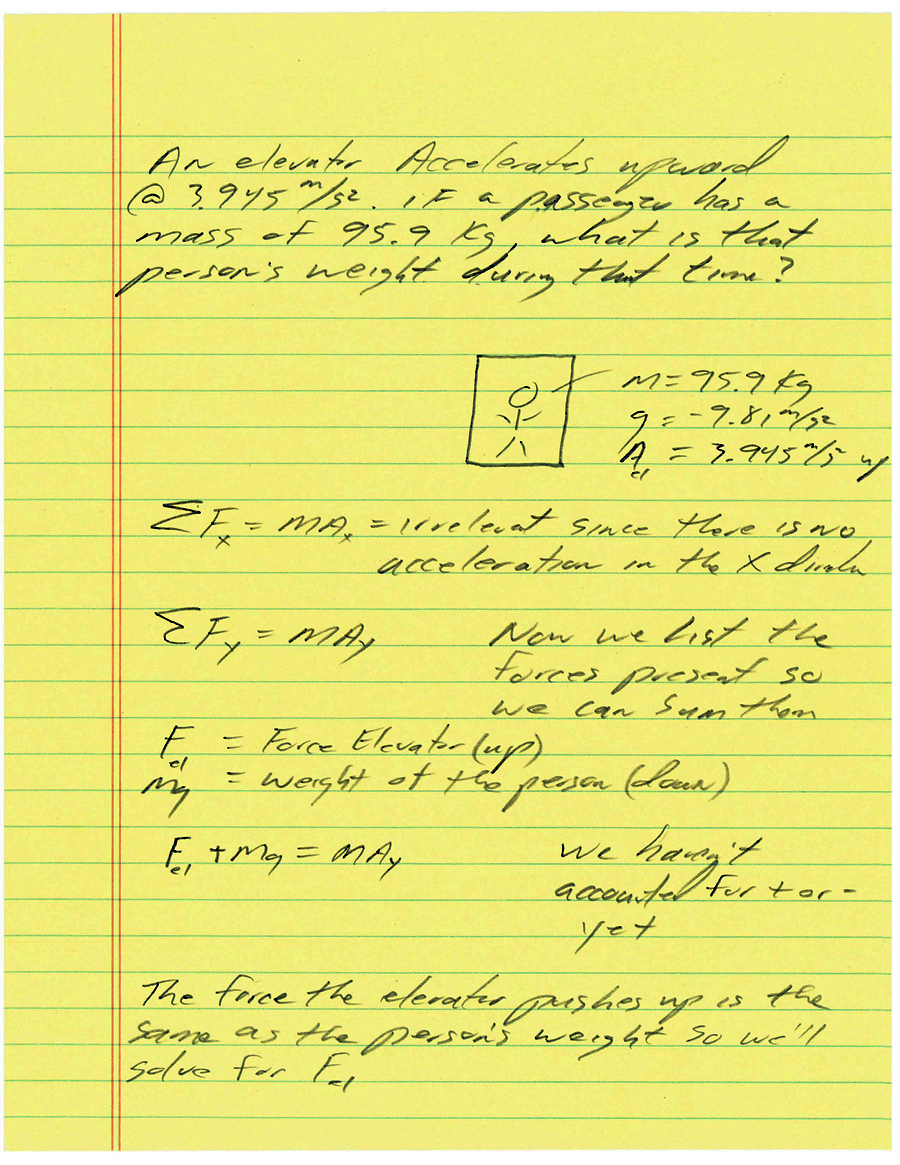 An elevator Accelerates upward
@ 3.945 m/s2. IF a passenger has a
mass of 95.9 Kg, what is that
person's weight during that time?
M = 95.9 Kg
g = -9.81 m/s2
A el = 3.945 m/s2 up
ΣFx = MAx = irrelevat since there is no
acceleration in the X
ΣFy = MAy Now we list the
forces present so
we can sum them
Fel = Force Elevator (up)
Mg = weight of the person (down)
Fel + Mg = MAy we haven't
accounted for + or -
yet
The force the elevator pushes up is the
same as the person's weight so we'll
solve for Fel